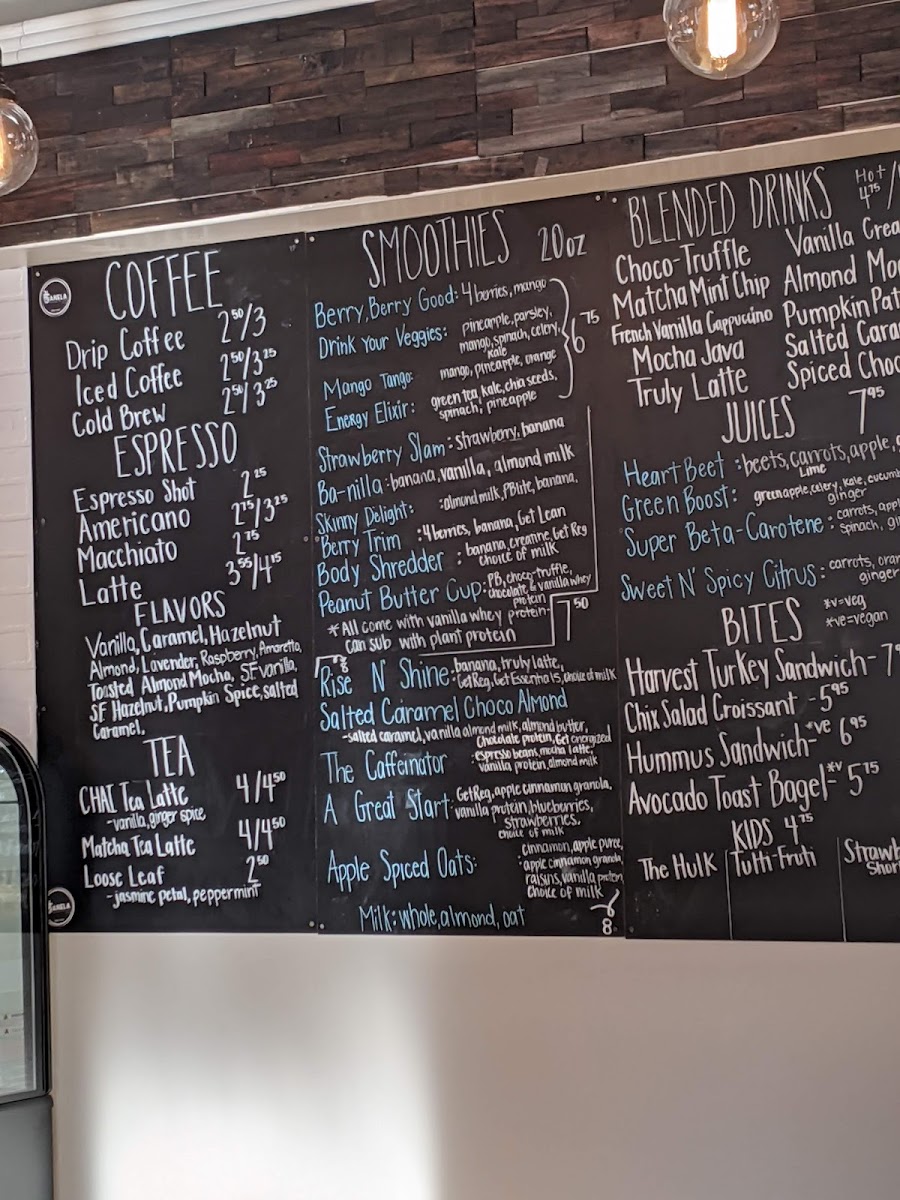 COFFEE
Drip Coffee 2⁵⁰/3
Iced Coffee 2⁵⁰/3²⁵
Cold Brew 2⁵⁰/3²⁵
ESPRESSO
Espresso Shot 2²⁵
Americano 2⁷⁵/3²⁵
Macchiato 2⁷⁵
Latte 3⁵⁵/4¹⁵
FLAVORS
Vanilla, Caramel, Hazelnut
Almond, Lavender, Raspberry, Amaretto,
Toasted Almond Mocha, SF vanilla,
SF Hazelnut, Pumpkin Spice, salted
Caramel,
TEA
CHAI Tea Latte 4/4⁵⁰
-vanilla, ginger spice
Matcha Tea Latte 4/4⁵⁰
Loose Leaf 2⁵⁰
-jasmine petal, peppermint
SMOOTHIES 20oz
Berry, Berry Good: 4 berries, mango
Drink Your Veggies: pineapple, parsley,
mango, spinach, celery,
kale
6⁷⁵
Mango Tango: mango, pineapple, orange
Energy Elixir: green tea, kale, chia seeds,
spinach, pineapple
Strawberry Slam: strawberry, banana
Ba-nilla: banana, vanilla, almond milk
Skinny Delight: almond milk, PBlite, banana,
Berry Trim: 4 berries, banana, Get Lean
Body Shredder: banana, creatine, Get Reg
choice of milk
Peanut Butter Cup: PB, choco-truffle,
chocolate & vanilla whey
protein
*All come with vanilla whey protein-
can sub with plant protein
7⁵⁰
Rise N' Shine: banana, truly latte,
GetReg, Get Essentials, choice of milk
Salted Caramel Choco Almond
-salted caramel, vanilla almond milk, almond butter,
Chocolate protein, Get energized
The Caffeinator: espresso beans, mocha latte,
vanilla protein, almond milk
A Great Start: GetReg, apple cinnamon granola,
vanilla protein, blueberries,
strawberries,
choice of milk
Apple Spiced Oats: cinnamon, apple puree,
apple cinnamon granola,
raisins, vanilla protein
choice of milk
Milk: whole, almond, oat
8
BLENDED DRINKS Hot
4⁷⁵/
Choco-Truffle
Matcha Mint Chip
French Vanilla Cappuccino
Mocha Java
Truly Latte
Vanilla Crea
Almond Mo
Pumpkin Pat
Salted Cara
Spiced Choc
JUICES 7⁹⁵
Heart Beet: beets, carrots, apple,
Lime
Green Boost: green apple, celery, kale, cucumb
ginger
Super Beta-Carotene: carrots, appl
spinach, gi
Sweet N' Spicy Citrus: carrots, oran
ginger
BITES *v=veg
*ve=vegan
Harvest Turkey Sandwich-7
Chix Salad Croissant -5⁹⁵
Hummus Sandwich-*ve 6⁹⁵
Avocado Toast Bagel-*v 5⁷⁵
KIDS 4⁷⁵
The Hulk
Tutti-Fruti
Strawb
Short